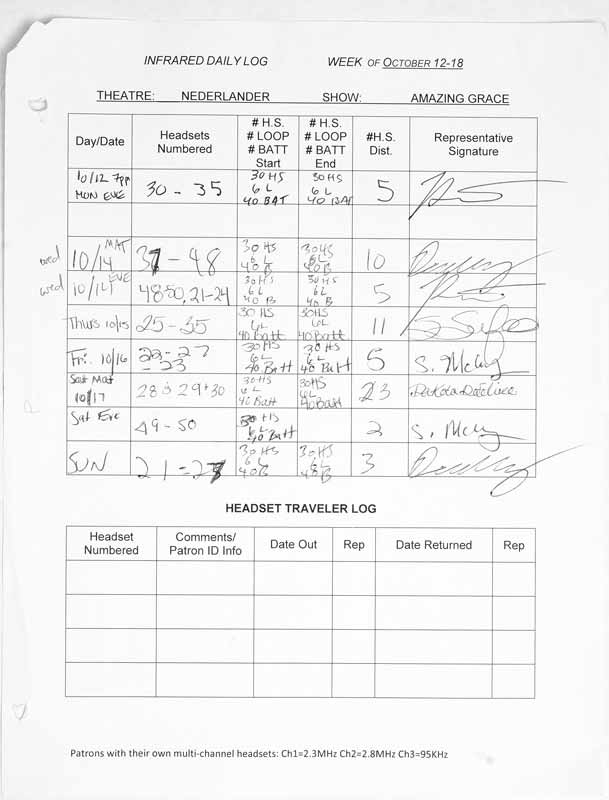 INFRARED DAILY LOG WEEK OF OCTOBER 12-18
THEATRE: NEDERLANDER SHOW: AMAZING GRACE
Day/Date Headsets Numbered # H.S. # LOOP # BATT Start # H.S. # LOOP # BATT End #H.S. Dist. Representative Signature
10/12 7pm MON EVE 30 - 35 30 HS 6 L 40 BAT 30 HS 6 L 40 BAT 5
wed 10/14 MAT 37 - 48 30 HS 6L 40 B 30 HS 6L 40 B 10
wed 10/14 EVE 48-50, 21-24 30 HS 6L 40 B 30 HS 6L 40 B 5
Thurs 10/15 25 - 35 30 HS 6L 40 Batt 30 HS 6L 40 Batt 11
Fri. 10/16 - 23 30 HS 6L 40 Batt 30 HS 6L 40 Batt 5 S.
Sat Mat 10/17 28 29 + 30 30 HS 6L 40 Batt 30 HS 6L 40 Batt 3 Dakota
Sat Eve 49 - 50 30 HS 6L 40 Batt 2 S.
SUN 21 - 30 HS 6L 40 B 30 HS 6L 40 B 3
HEADSET TRAVELER LOG
Headset Numbered Comments/ Patron ID Info Date Out Rep Date Returned Rep
Patrons with their own multi-channel headsets: Ch1=2.3MHz Ch2=2.8MHz Ch3=95KHz